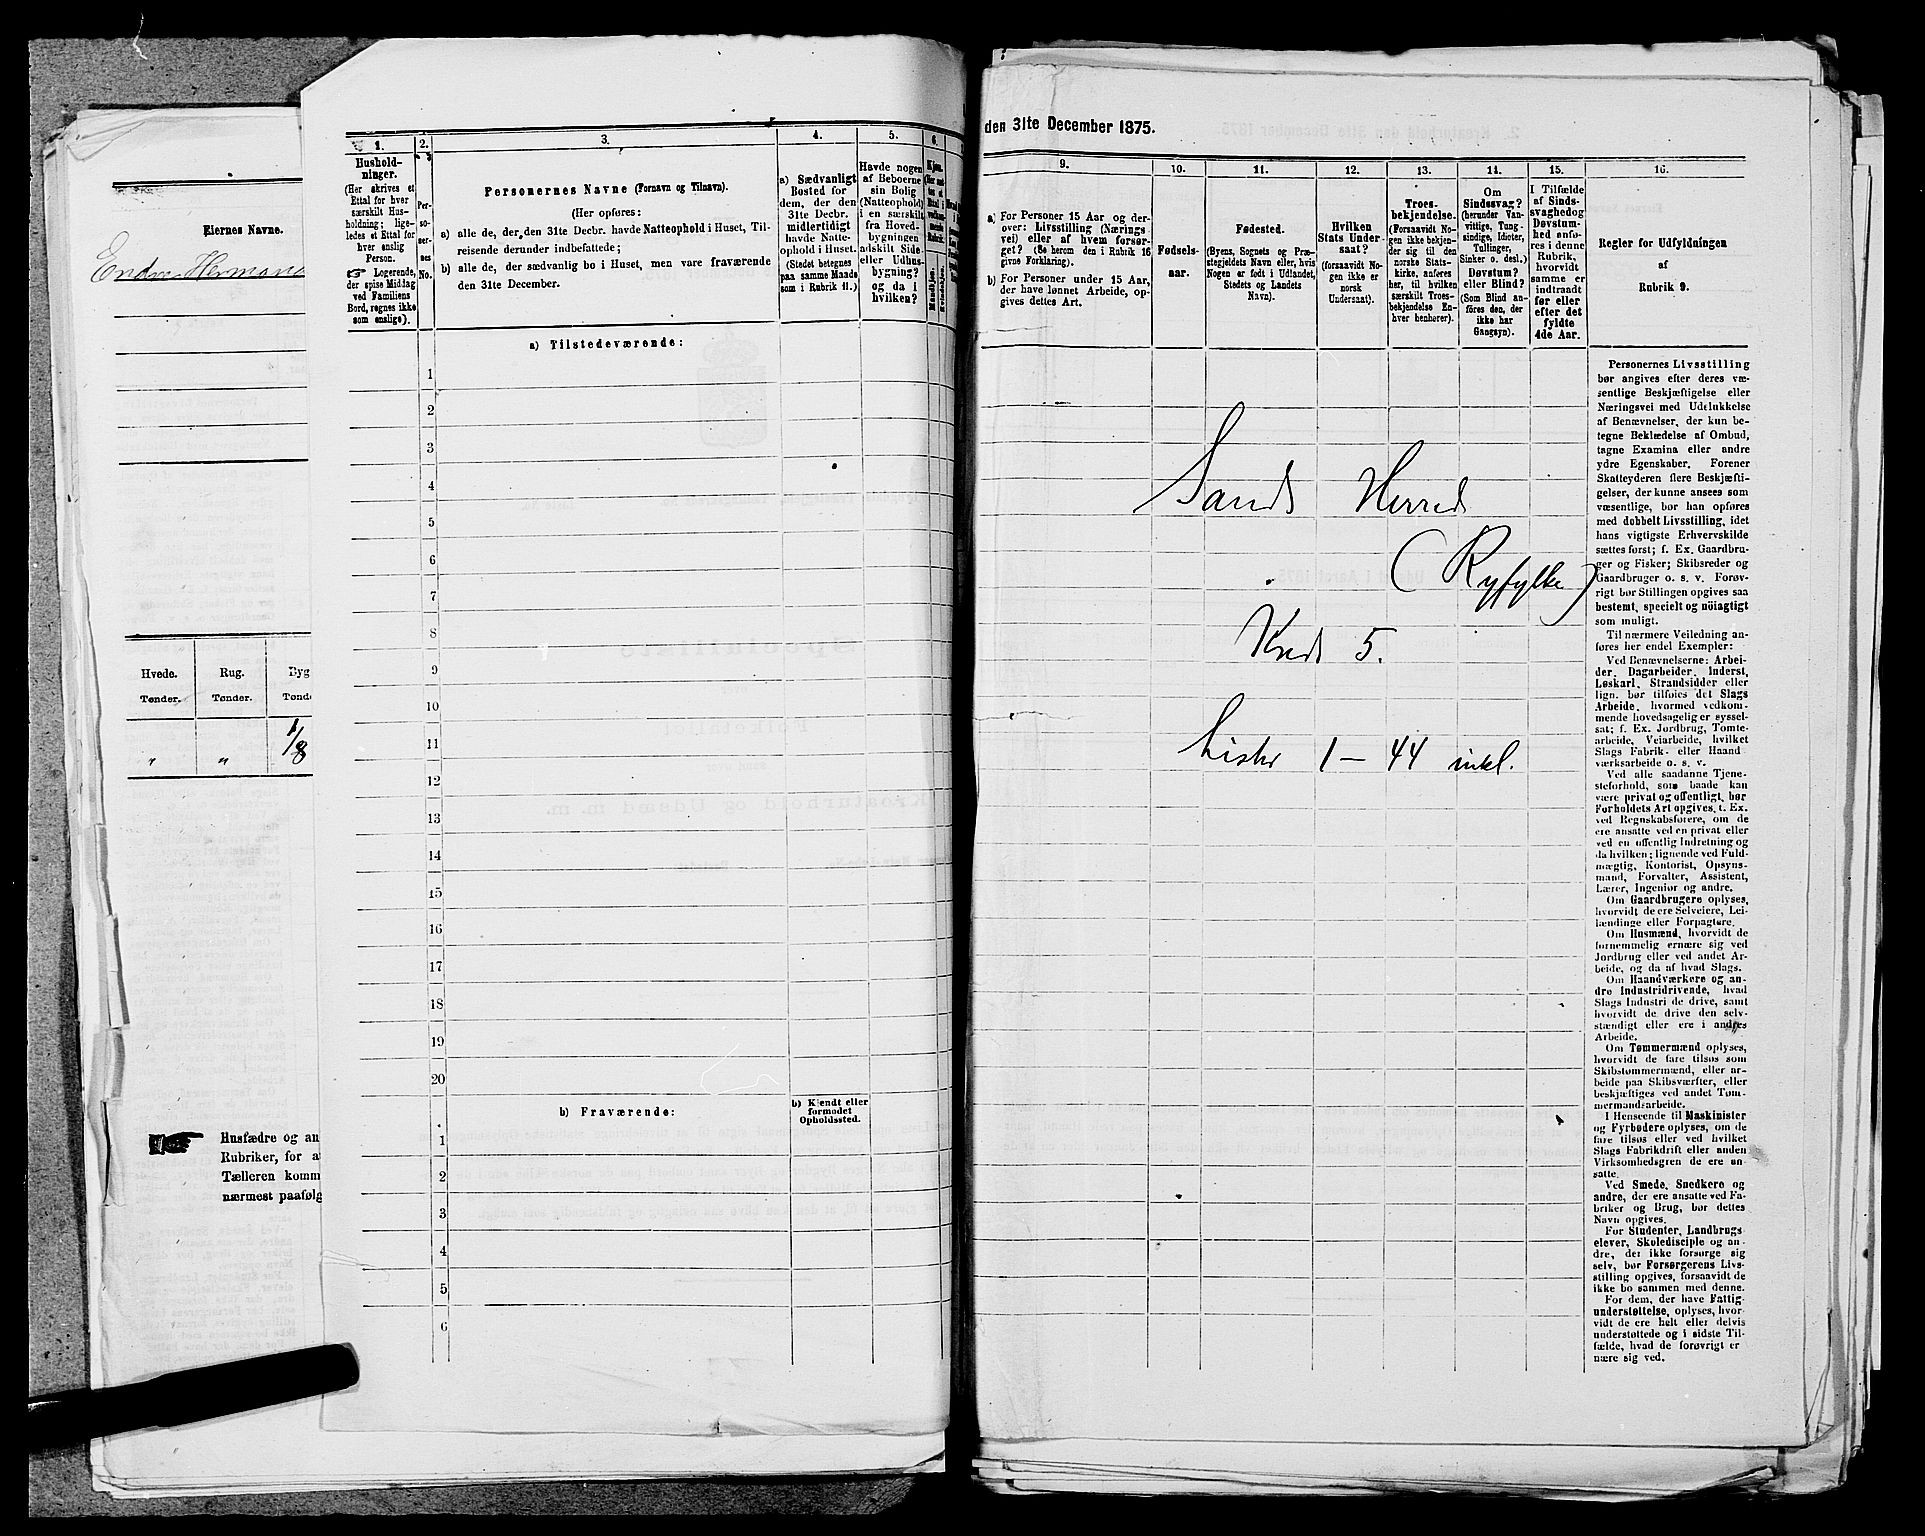 Eiernes Navne.
Endre Hermans
Hvede. Rug. Byg
Tønder. Tønder. Tønde
" " 1/8
Husfædre og an
Rubriker, for a
Tælleren komm
nærmest paafølg
1. 2. 3. 4. 5. 6.
Hushold-
ninger.
(Her skrives et
Ettal for hver
særskilt Hus-
holdning; lige-
ledes et Ettal for
hver enslig
Person.
☞ Logerende,
der spise Middag
ved Familiens
Bord, regnes ikke
som enslige).
Per-
so-
ner-
nes
No.
Personernes Navne (Fornavn og Tilnavn).
(Her opføres:
a) alle de, der den 31te Decbr. havde Natteophold i Huset, Til-
reisende derunder indbefattede;
b) alle de, der sædvanlig bo i Huset, men vare fraværende
den 31te December.
a) Sædvanligt
Bosted for
dem, der den
31te Decbr.
midlertidigt
havde Natte-
ophold i Huset.
(Stedet betegnes
paa samme Maade
som i Rubrik 11.)
Havde nogen
af Beboerne
sin Bolig
(Natteophold)
i en særskilt
fra Hoved-
bygningen
adskilt Side-
eller Udhus-
bygning?
og da i
hvilken?
Kjøn.
Mandkjøn.
Kvindekjøn.
a) Tilstedeværende:
1
2
3
4
5
6
7
8
9
10
11
12
13
14
15
16
17
18
19
20
b) Fraværende:
b) Kjendt eller
formodet
Opholdssted.
1
2
3
4
5
6
den 31te December 1875.
9. 10. 11. 12. 13. 14. 15. 16.
a) For Personer 15 Aar og der-
over: Livsstilling (Nærings-
vei) eller af hvem forsør-
get? (Se herom den i Rubrik 16
givne Forklaring).
b) For Personer under 15 Aar,
der have lønnet Arbeide, op-
gives dettes Art.
Fødsels-
aar.
Fødested.
(Byens, Sognets og Præ-
stegjeldets Navn eller, hvis
Nogen er født i Udlandet,
Stedets og Landets
Navn).
Hvilken
Stats Under-
saat?
(forsaavidt No-
gen ikke er
norsk
Undersaat).
Troes-
bekjendelse.
(Forsaavidt No-
gen ikke bekjen-
der sig til den
norske Stats-
kirke, anføres
her, til hvilken
særskilt Troes-
bekjendelse En-
hver henhører).
Om
Sindssvag?
(herunder Van-
vittige, Tung-
sindige, Idioter,
Tullinger,
Sinker o. desl.)
Døvstum?
eller Blind?
(Som Blind an-
føres den, der
ikke har
Gangsyn).
I Tilfælde
af Sinds-
svaghed og
Døvstum-
hed anfø-
res i denne
Rubrik,
hvorvidt
samme er
indtraadt
før eller
efter det
fyldte
4de Aar.
Regler for Udfyldningen
af
Rubrik 9.
Sands Herred
(Ryfylke)
Kreds 5.
Lister 1 — 44 inkl.
Personernes Livsstilling
bør angives efter deres væ-
sentlige Beskjæftigelse eller
Næringsvei med Udelukkelse
af Benævnelser, der kun be-
tegne Beklædelse af Ombud,
tagne Examina eller andre
ydre Egenskaber. Forener
Skatteyderen flere Beskjæfti-
gelser, der kunne ansees som
væsentlige, bør han opføres
med dobbelt Livsstilling, idet
hans vigtigste Erhvervskilde
sættes først; f. Ex. Gaardbru-
ger og Fisker; Skibsreder og
Gaardbruger o. s. v. Forøv-
rigt bør Stillingen opgives saa
bestemt, specielt og nöiagtigt
som muligt.
Til nærmere Veiledning an-
føres her endel Exempler:
Ved Benævnelserne: Arbei-
der, Dagarbeider, Inderst,
Løskarl, Strandsidder eller
lign. bør tilføies det Slags
Arbeide, hvormed vedkom-
mende hovedsagelig er syssel-
sat; f. Ex. Jordbrug, Tomte-
arbeide, Veiarbeide, hvilket
Slags Fabrik- eller Haand-
værksarbeide o. s. v.
Ved alle saadanne Tjene-
steforhold, som baade kan
være privat og offentligt, bør
Forholdets Art opgives, t. Ex.
ved Regnskabsførere, om de
ere ansatte ved en privat eller
ved en offentlig Indretning og
da hvilken; lignende ved Fuld-
mægtig, Kontorist, Opsyns-
mand, Forvalter, Assistent,
Lærer, Ingeniør og andre.
Om Gaardbrugere oplyses,
hvorvidt de ere Selveiere, Lei-
lændinge eller Forpagtere.
Om Husmænd, hvorvidt de
fornemmelig ernære sig ved
Jordbrug eller ved andet Ar-
beide, og da af hvad Slags.
Om Haandværkere og an-
dre Industridrivende, hvad
Slags Industri de drive, samt
hvorvidt de drive den selv-
stændigt eller ere i andres
Arbeide.
Om Tømmermænd oplyses,
hvorvidt de fare tilsøs som
Skibstømmermænd, eller ar-
beide paa Skibsværfter, eller
beskjæftiges ved andet Tøm-
mermandsarbeide.
I Henseende til Maskinister
og Fyrbødere oplyses, om de
fare tilsøs eller ved hvilket
Slags Fabrikdrift eller anden
Virksomhedsgren de ere an-
satte.
Ved Smede, Snedkere og
andre, der ere ansatte ved Fa-
briker og Brug, bør dettes
Navn opgives.
For Studenter, Landbrugs-
elever, Skoledisciple og an-
dre, der ikke forsørge sig
selv, bør Forsørgerens Livs-
stilling opgives, forsaavidt de
ikke bo sammen med denne.
For dem, der have Fattig-
understøttelse, oplyses, hvor-
vidt de ere helt eller delvis
understøttede og i sidste Til-
fælde, hvad de forøvrigt er-
nære sig ved.